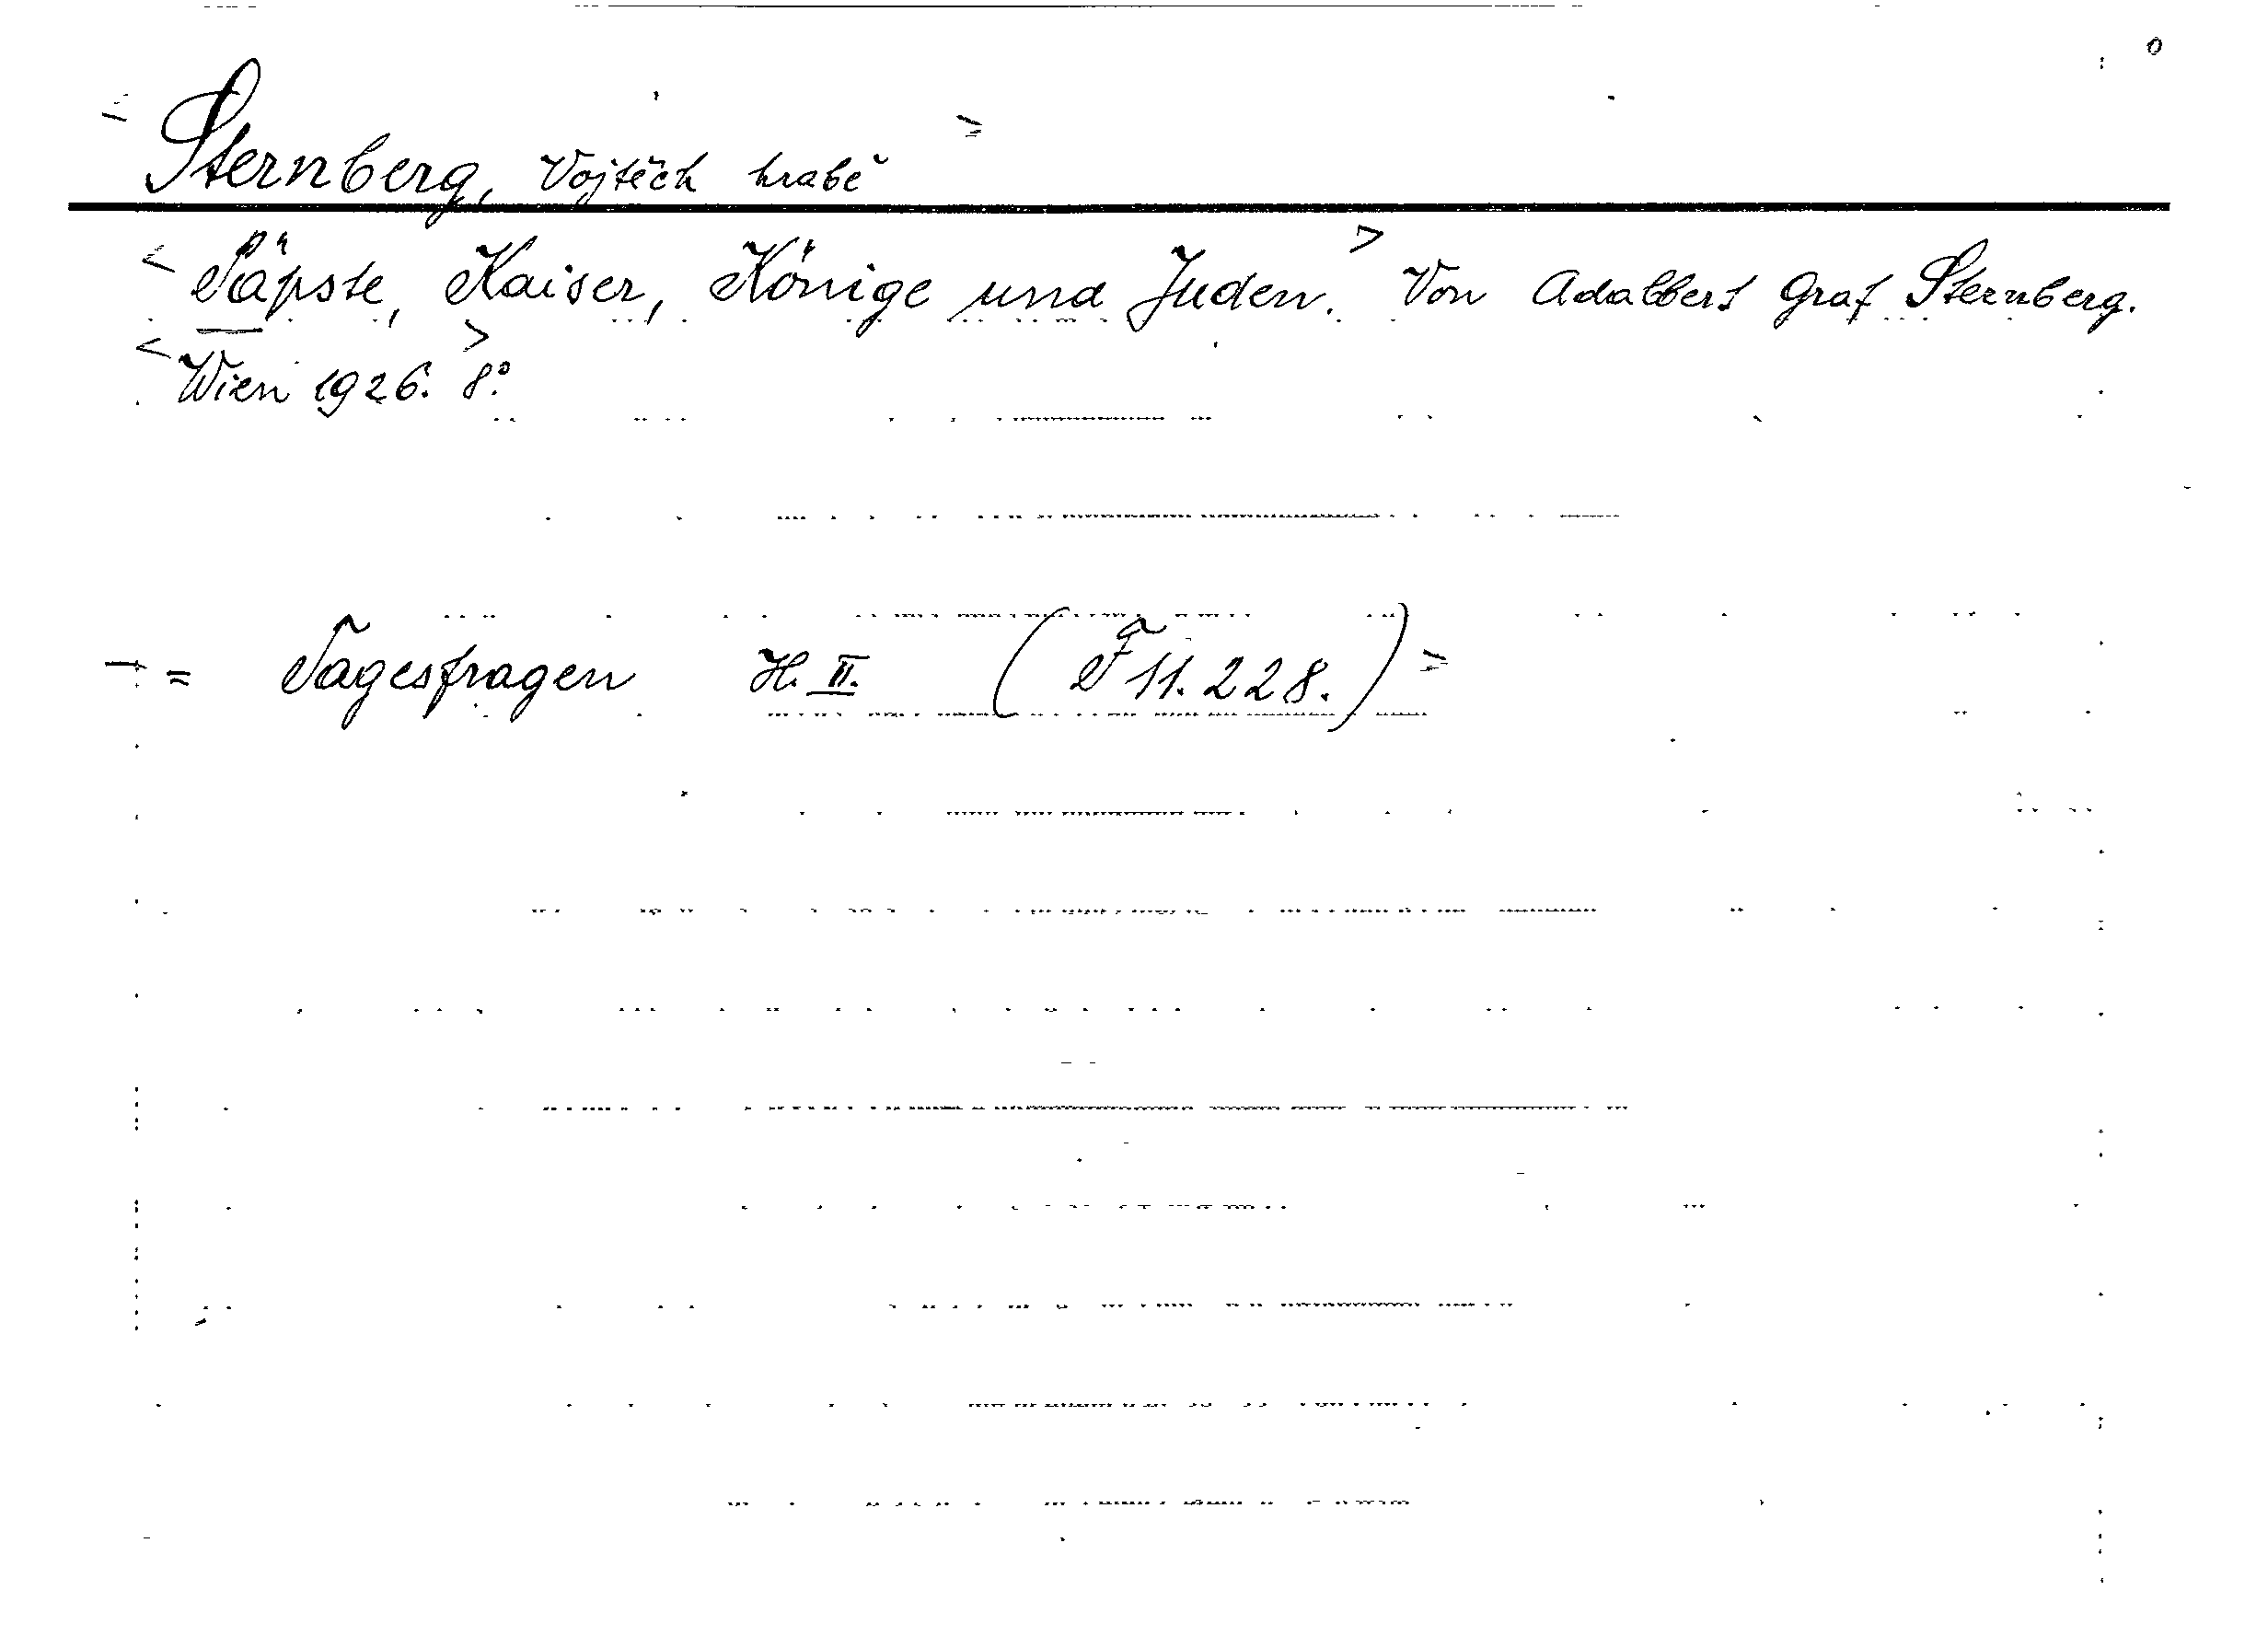 Sternberg, Vojtěch hrabě
<Päpste, Kaiser, Könige und Juden.> Von Adalbert Graf Sternberg.
<Wien 1926.> 8°.
= Tagesfragen H. II. (F 11.228.)